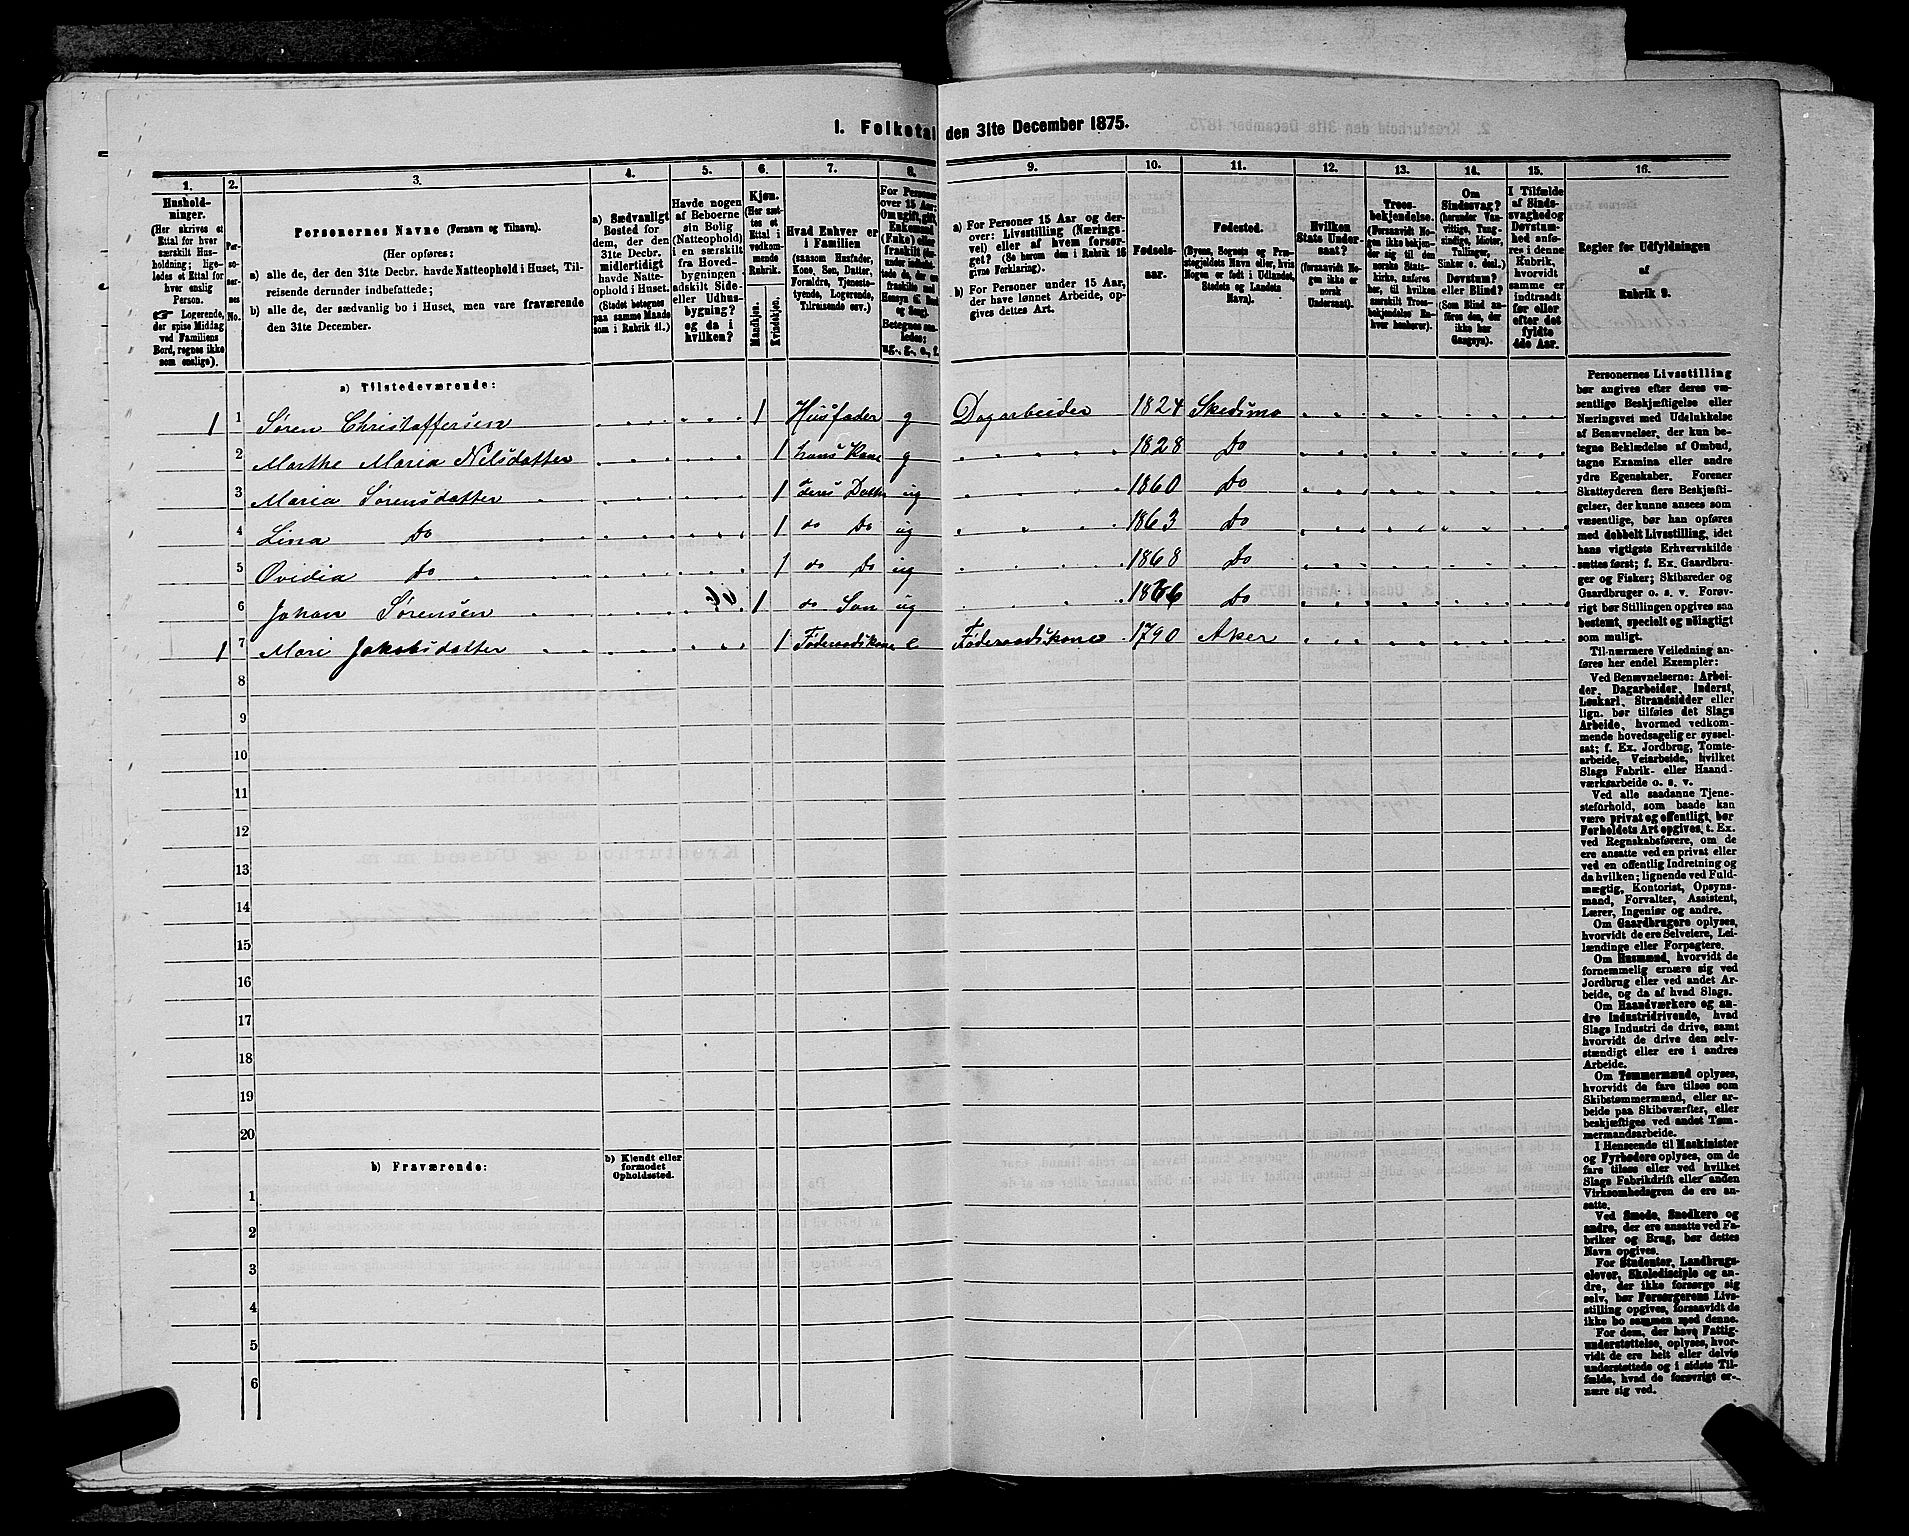 1. Folketal den 31te December 1875.
1. 2. 3. 4. 5. 6. 7. 8. 9. 10. 11. 12. 13. 14. 15. 16.
Hushold-
ninger.
(Her skrives et
Ettal for hver
særskilt Hus-
holdning; lige-
ledes et Ettal for
hver enslig
Person.
☞ Logerende,
der spise Middag
ved Familiens
Bord, regnes ikke
som enslige).
Per-
so-
ner-
nes
No.
Personernes Navne (Fornavn og Tilnavn).
(Her opføres:
a) alle de, der den 31te Decbr. havde Natteophold i Huset, Til-
reisende derunder indbefattede;
b) alle de, der sædvanlig bo i Huset, men vare fraværende
den 31te December.
a) Sædvanligt
Bosted for
dem, der den
31te Decbr.
midlertidigt
havde Natte-
ophold i Huset.
(Stedet betegnes
paa samme Maade
som i Rubrik 11.)
Havde nogen
af Beboerne
sin Bolig
(Natteophold)
i en særskilt
fra Hoved-
bygningen
adskilt Side-
eller Udhus-
bygning?
og da i
hvilken?
Kjøn.
(Her sæt-
tes et
Ettal i
vedkom-
mende
Rubrik.
Mandkjøn.
Kvindekjøn.
Hvad Enhver er
i Familien
(saasom Husfader,
Kone, Søn, Datter,
Forældre, Tjeneste-
tyende, Logerende,
Tilreisende osv.)
For Personer
over 15 Aar:
Om ugift, gift,
Enkemand
(Enke) eller
fraskilt
Betegnes saa-
ledes:
ug., g., e., f.
a) For Personer 15 Aar og der-
over: Livsstilling (Nærings-
vei) eller af hvem forsør-
get? (Se herom den i Rubrik 16
givne Forklaring).
b) For Personer under 15 Aar,
der have lønnet Arbeide, op-
gives dettes Art.
Fødsels-
aar.
Fødested.
(Byens, Sognets og Præ-
stegjeldets Navn eller, hvis
Nogen er født i Udlandet,
Stedets og Landets
Navn).
Hvilken
Stats Under-
saat?
(forsaavidt No-
gen ikke er
norsk
Undersaat).
Troes-
bekjendelse.
(Forsaavidt No-
gen ikke bekjen-
der sig til den
norske Stats-
kirke, anføres
her, til hvilken
særskilt Troes-
bekjendelse En-
hver henhører).
Om
Sindssvag?
(herunder Van-
vittige, Tung-
sindige, Idioter,
Tullinger,
Sinker o. desl.)
Døvstum?
eller Blind?
(Som Blind an-
føres den, der
ikke har
Gangsyn).
I Tilfælde
af Sinds-
svaghed og
Døvstum-
hed anfø-
res i denne
Rubrik,
hvorvidt
samme er
indtraadt
før eller
efter det
fyldte
4de Aar.
Regler for Udfyldningen
af
Rubrik 9.
a) Tilstedeværende:
1 1 Søren Christoffersen 1 Husfader g Dagarbeider 1824 Skedsmo
2 Marthe Maria Nilsdatter 1 hans Kone g 1828 Do
3 Maria Sørensdatter 1 deres Datter ug 1860 Do
4 Lina Do 1 do Do ug 1863 Do
5 Ovidia Do 1 do Do ug 1868 Do
6 Johan Sørensen 1 do Søn ug 1866 Do
1 7 Mari Jakobsdatter 1 Føderaadskone e Føderaadskone 1790 Aker
8
9
10
11
12
13
14
15
16
17
18
19
20
b) Fraværende:
b) Kjendt eller
formodet
Opholdssted.
1
2
3
4
5
6
Personernes Livsstilling
bør angives efter deres væ-
sentlige Beskjæftigelse eller
Næringsvei med Udelukkelse
af Benævnelser, der kun be-
tegne Beklædelse af Ombud,
tagne Examina eller andre
ydre Egenskaber. Forener
Skatteyderen flere Beskjæfti-
gelser, der kunne ansees som
væsentlige, bør han opføres
med dobbelt Livsstilling, idet
hans vigtigste Erhvervskilde
sættes først; f. Ex. Gaardbru-
ger og Fisker; Skibsreder og
Gaardbruger o. s. v. Forøv-
rigt bør Stillingen opgives saa
bestemt, specielt og nøiagtigt
som muligt.
Til nærmere Veiledning an-
føres her endel Exempler:
Ved Benævnelserne: Arbei-
der, Dagarbeider, Inderst,
Løskarl, Strandsidder eller
lign. bør tilføies det Slags
Arbeide, hvormed vedkom-
mende hovedsagelig er syssel-
sat; f. Ex. Jordbrug, Tomte-
arbeide, Veiarbeide, hvilket
Slags Fabrik- eller Haand-
værksarbeide o. s. v.
Ved alle saadanne Tjene-
steforhold, som baade kan
være privat og offentligt, bør
Forholdets Art opgives, t. Ex.
ved Regnskabsførere, om de
ere ansatte ved en privat eller
ved en offentlig Indretning og
da hvilken; lignende ved Fuld-
mægtig, Kontorist, Opsyns-
mand, Forvalter, Assistent,
Lærer, Ingeniør og andre.
Om Gaardbrugere oplyses,
hvorvidt de ere Selveiere, Lei-
lændinge eller Forpagtere.
Om Husmænd, hvorvidt de
fornemmelig ernære sig ved
Jordbrug eller ved andet Ar-
beide, og da af hvad Slags.
Om Haandværkere og an-
dre Industridrivende, hvad
Slags Industri de drive, samt
hvorvidt de drive den selv-
stændigt eller ere i andres
Arbeide.
Om Tømmermænd oplyses,
hvorvidt de fare tilsøs som
Skibstømmermænd, eller ar-
beide paa Skibsværfter, eller
beskjæftiges ved andet Tøm-
mermandsarbeide.
I Henseende til Maskinister
og Fyrbødere oplyses, om de
fare tilsøs eller ved hvilket
Slags Fabrikdrift eller anden
Virksomhedsgren de ere an-
satte.
Ved Smede, Snedkere og
andre, der ere ansatte ved Fa-
briker og Brug, bør dettes
Navn opgives.
For Studenter, Landbrugs-
elever, Skoledisciple og an-
dre, der ikke forsørge sig
selv, bør Forsørgerens Livs-
stilling opgives, forsaavidt de
ikke bo sammen med denne.
For dem, der have Fattig-
understøttelse, oplyses, hvor-
vidt de ere helt eller delvis
understøttede og i sidste Til-
fælde, hvad de forøvrigt er-
nære sig ved.